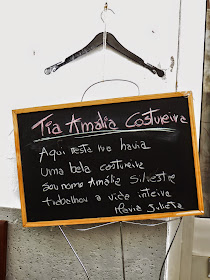 Tia Amália Costureira
Aqui nesta rua havia
uma bela costureira
seu nome Amália Silvestre
trabalhou a vida inteira
Flávia Silvestre